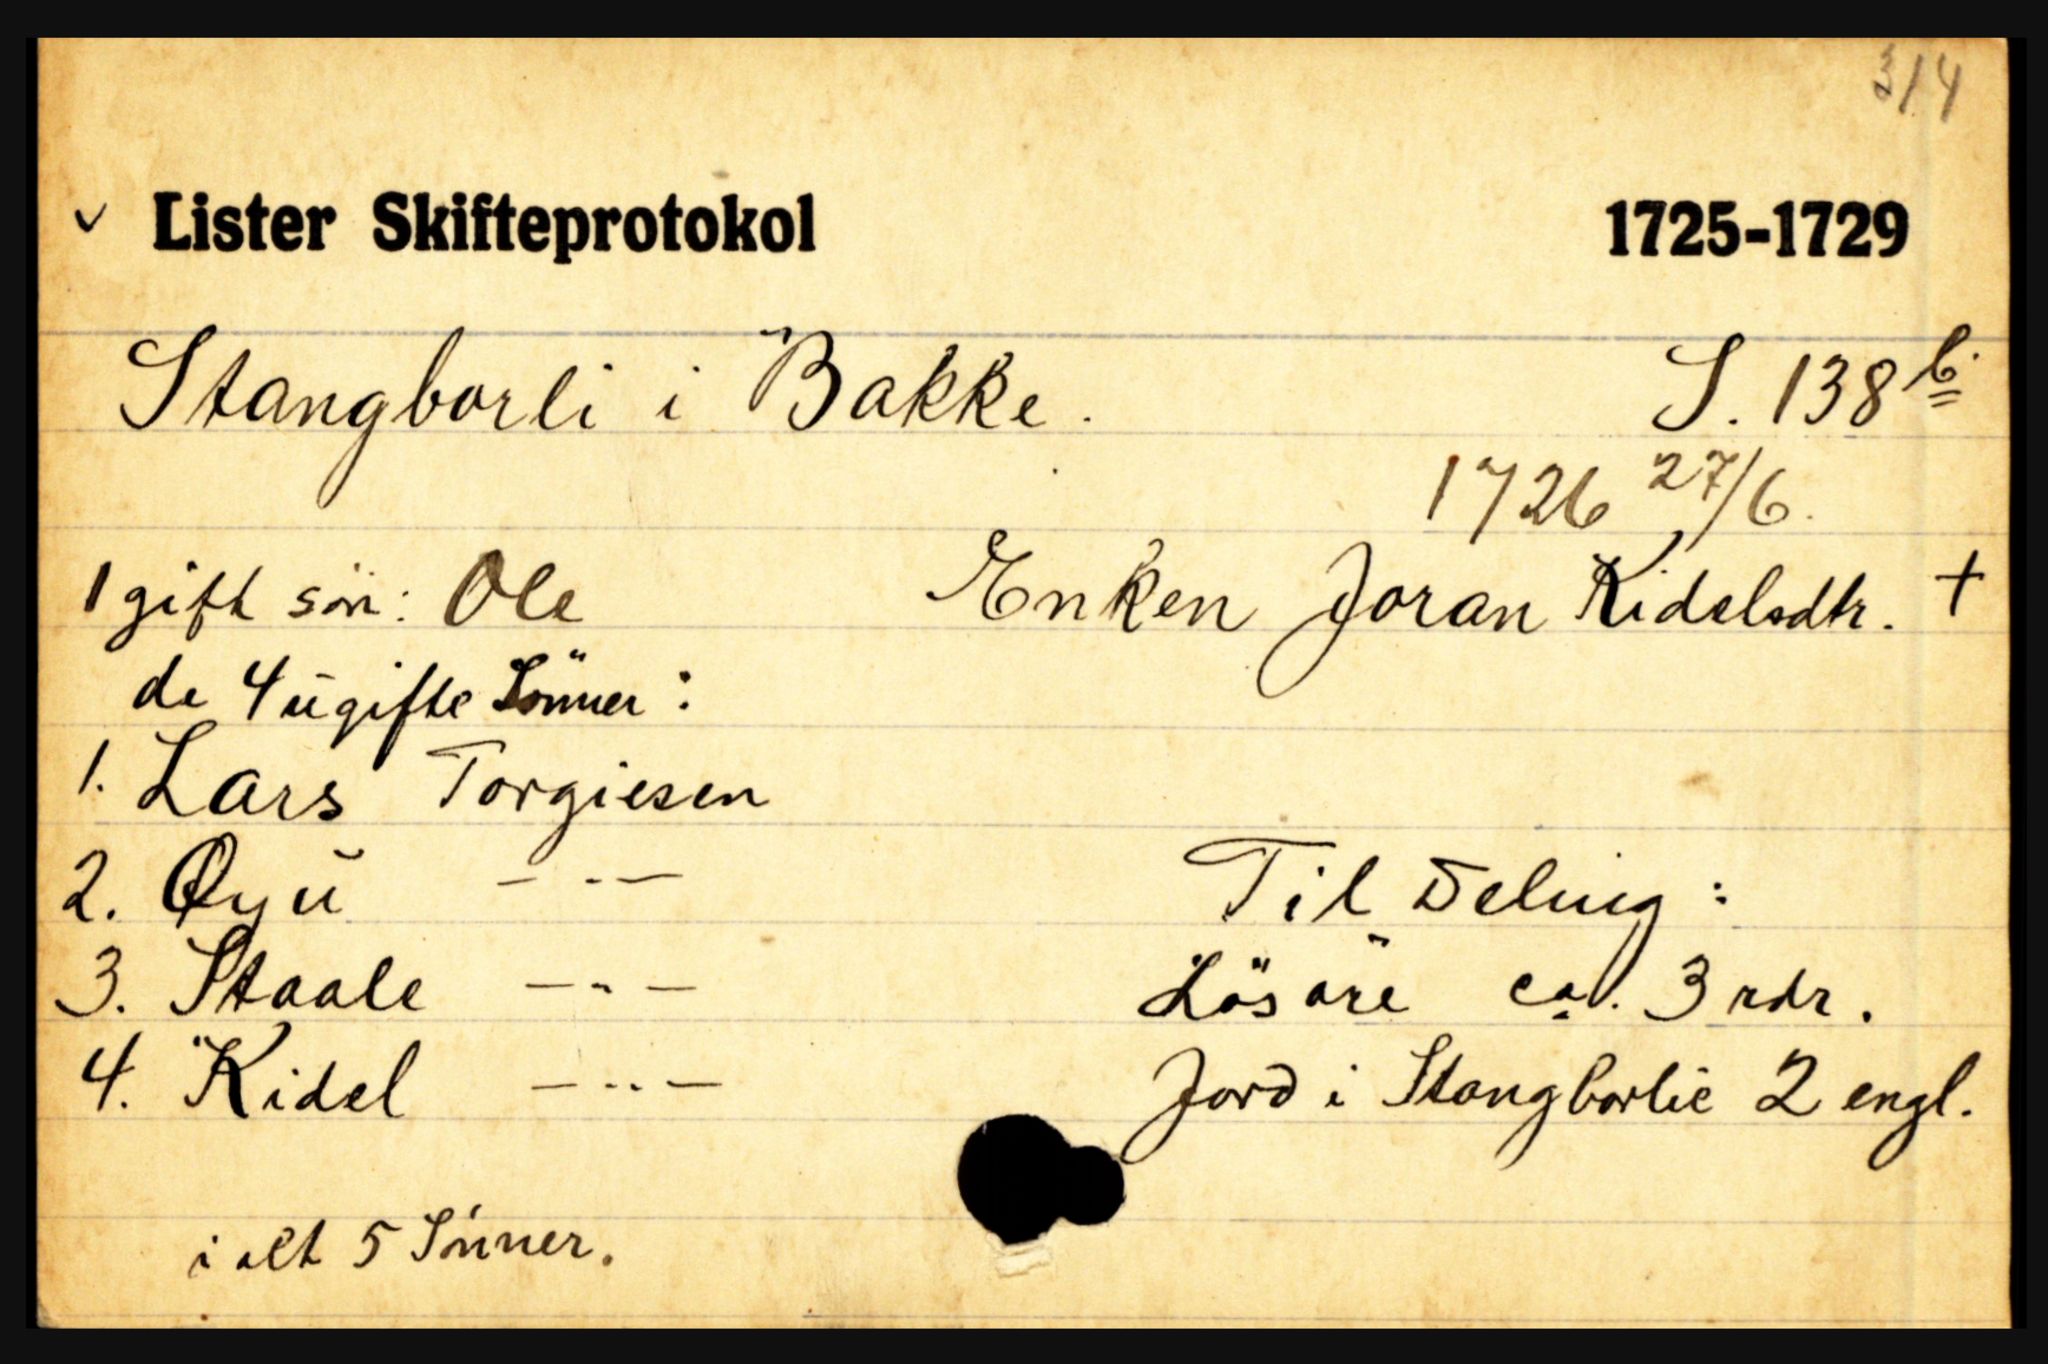 314
✓ Lister Skifteprotokol 1725-1729
Stangborli i Bakke. S. 138 b.
1726 27/6.
1 gift sön: Ole Enken Joran Kidelsdtr. +
de 4 ugifte Sönner:
1. Lars Torgiesen
2. Øyu — - — Til Deling:
3. Staale — - — Lösöre ca. 3 rdr.
4. Kidel — - — Jord i Stangborlie 2 engl.
i alt 5 Sönner.